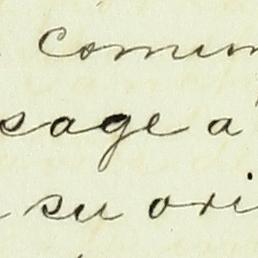 comun
sage a
su ori